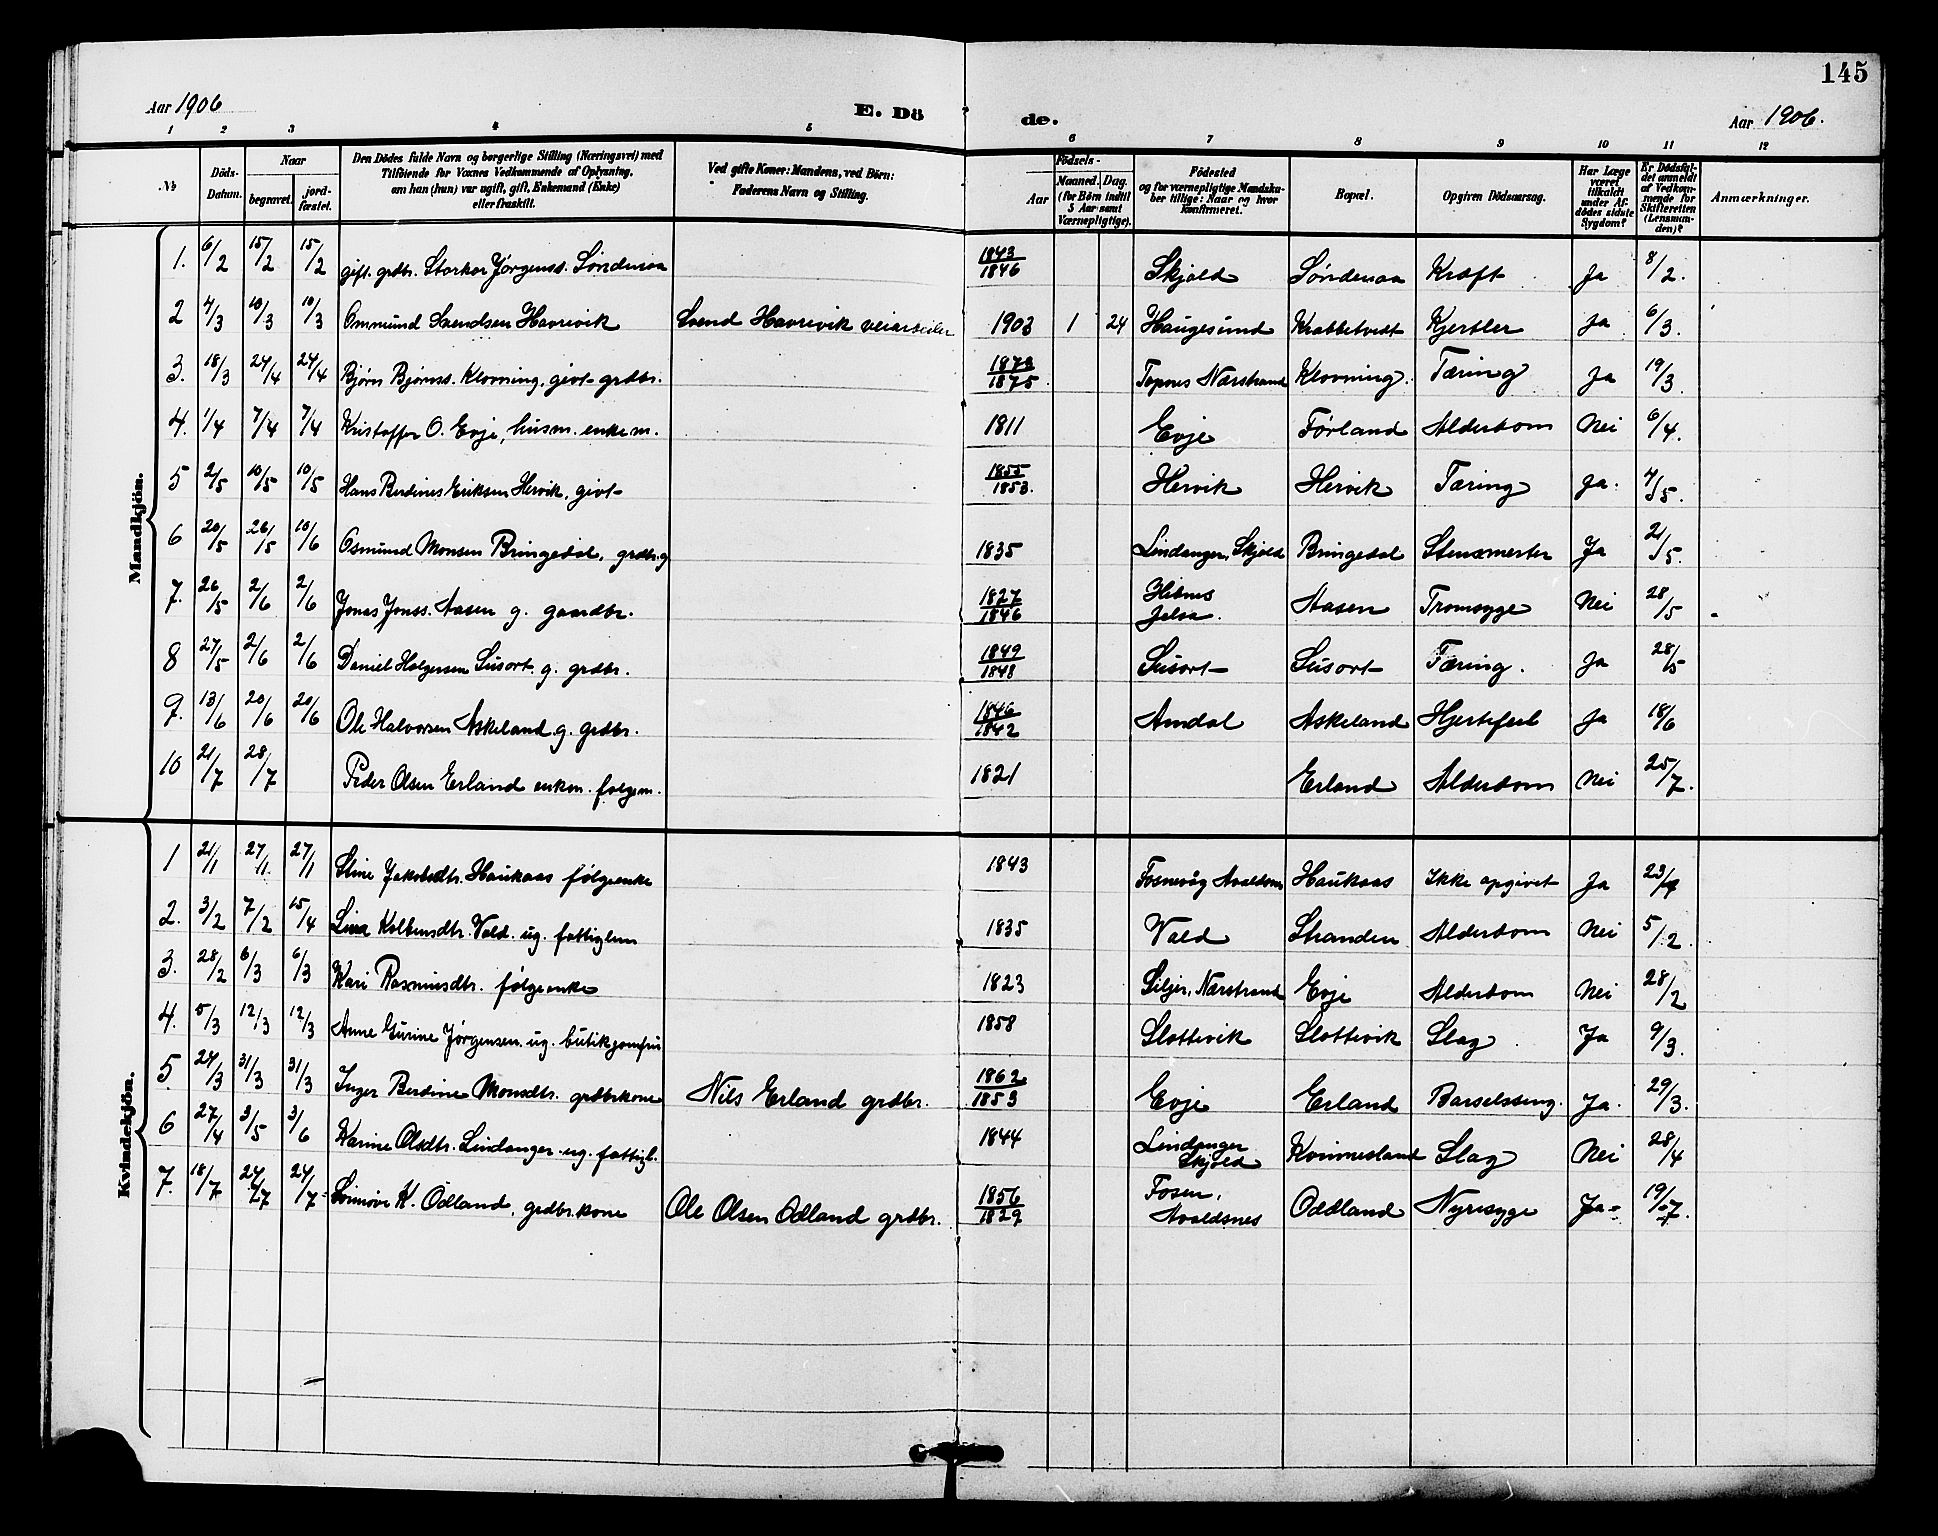 145
Aar 1906
E. Dö
de.
Aar 1906.
1 2 3 4 5 6 7 8 9 10 11 12
№
Döds-Datum.
Naar
begravet.
jord-fæstet.
Den Dödes fulde Navn og borgerlige Stilling (Næringsvei) med
Tilföiende for Voxnes Vedkommende af Oplysning,
om han (hun) var ugift, gift, Enkemand (Enke)
eller fraskilt.
Ved gifte Koner: Mandens, ved Börn:
Faderens Navn og Stilling.
Födsels-
Aar
Maaned. Dag.
(for Börn indtil
5 Aar samt
Værnepligtige).
Födested
og for værnepligtige Mandska-
ber tillige: Naar og hvor
konfirmeret.
Bopæl.
Opgiven Dödsaarsag.
Har Læge
været
tilkaldt
under Af-
dödes sidste
Sygdom?
Er Dödsfal-
det anmeldt
af Vedkom-
mende for
Skifteretten
(Lensman-
den)?
Anmærkninger.
Mandkjön.
1. 6/2 15/2 15/2 gift. grdbr. Storkor Jørgenss. Søndenaa 1843/1846 Skjold Søndenaa Kræft Ja 8/2.
2 4/3 10/3 10/3 Ommund Svendsen Havrevik Svend Havrevik veiarbeider 1903 1 24 Haugesund Krabbetvedt Kjertler Ja 6/3.
3. 18/3 24/4 24/4 Bjørn Bjørnss. Klovning, givt grdbr. 1873/1875. Topnes Nærstrand Klovning. Tæring Ja 19/3
4. 1/4 7/4 7/4 Kristoffer O. Evje, husm. enkem. 1811 Evje Førland Alderdom Nei 6/4.
5 2/5 10/5 10/5 Hans Berdines Eriksen Hervik, givt 1855/1853. Hervik Hervik Tæring Ja. 4/5.
6 20/5 26/5 10/6 Osmund Monsen Bringedal, grdbr. g 1835 Lindanger, Skjold Bringedal Stenæmerter Ja 21/5.
7. 26/5 2/6 2/6 Jonas Jonss. Aasen g. gaardbr. 1827/1846 Hebnes Jelsa. Aasen Tromsyge Nei 28/5
8 27/5 2/6 2/6 Daniel Holgersen Susort g. grdbr. 1849/1848 Susort Susort Tæring. Ja 28/5
9. 13/6 20/6 20/6 Ole Halvorsen Askeland g. grdbr. 1846/1842 Amdal Askeland Hjertefeil Ja 18/6
10 21/7 28/7 Peder Olsen Erland enkem. følgem. 1821 Erland Alderdom Nei 25/7.
Kvindekjön.
1 21/1 27/1. 27/1 Stine Jakobsdtr. Haukaas følgeenke 1843 Fosnevåg Avaldsnes Haukaas Ikke opgivet Ja
2. 3/2 7/2 15/4 Lina Kolbensdtr. Vold. ug. fattiglem 1835 Vold Stranden Alderdom Nei 5/2.
3. 28/2 6/3 6/3 Kari Rasmusdtr. følgeenke 1823 Siljer, Nærstrand Evje Alderdom Nei 28/2
4. 5/3 12/3 12/3 Anne Gurine Jørgensen. ug. butikjomfru 1858 Slottevik Slottevik Slag. Ja 9/3.
5. 24/3 31/3 31/3 Inger Berdine Monsdtr. grdbrkone Nils Erland grdbr. 1862/1853 Evje Erland Barselsseng. Ja. 29/3.
6 27/4 3/5 3/6 Karine Olsdtr. Lindanger. ug. fattigl. 1844 Lindanger Skjold Kvinnesland Slag Nei 28/4
7. 18/7 24/7 24/7 K. Odland, grdbr.kone Ole Olsen Odland grdbr. 1856/1829 Fosen, Avaldsnes Oddland Nyresyge Ja 19/7.